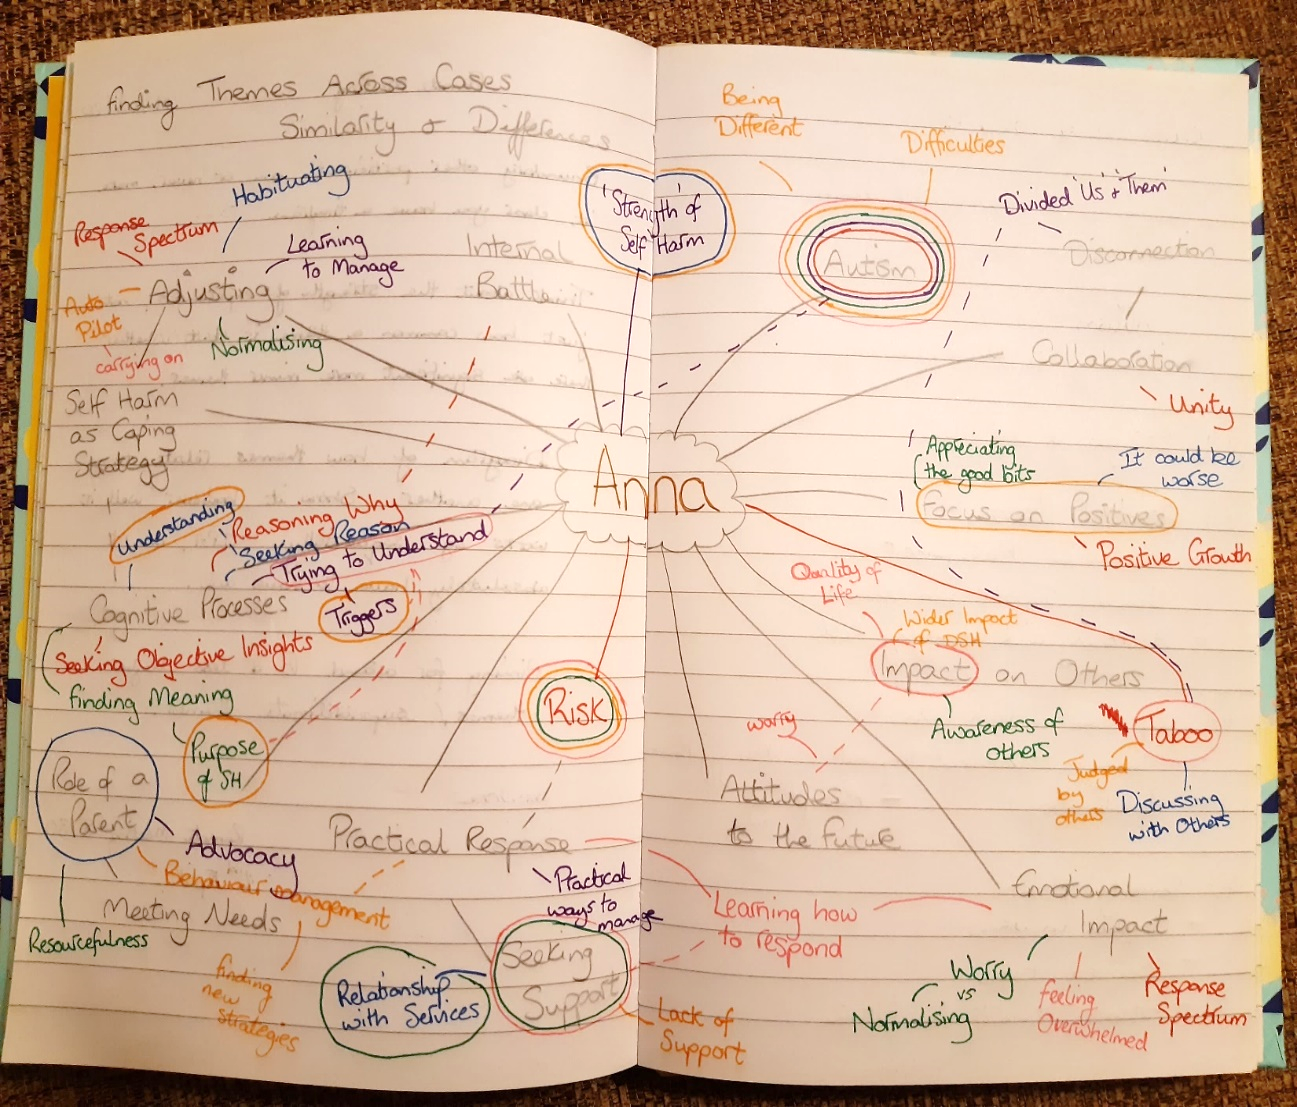 finding Themes Across Cases
Similarity & Differences
Habituating
Response
Spectrum
Learning
to Manage
Adjusting
Auto
Pilot
carrying on
Normalising
Internal
Battle
'Strength of
Self Harm'
Self Harm
as Coping
Strategy
Anna
Understanding
Reasoning Why
Seeking Reason
Trying to Understand
Triggers
Cognitive Processes
Seeking Objective Insights
finding Meaning
Purpose
of SH
Risk
Role of a
Parent
Advocacy
Behaviour management
Meeting Needs
Resourcefulness
finding
new
strategies
Practical Response
Practical
ways to
manage
Seeking
Support
Relationship
with Services
Lack of
Support
Being
Different
Difficulties
Autism
Divided 'Us & Them'
Disconnection
Collaboration
Unity
Appreciating
the good bits
It could be
worse
Focus on Positives
Positive Growth
Quality of
Life
Wider Impact
of DSH
Impact on Others
Awareness of
others
Taboo
Judged
by
others
Discussing
with Others
worry
Attitudes
to the future
Learning how
to respond
Emotional
Impact
Worry
vs
Normalising
feeling
Overwhelmed
Response
Spectrum